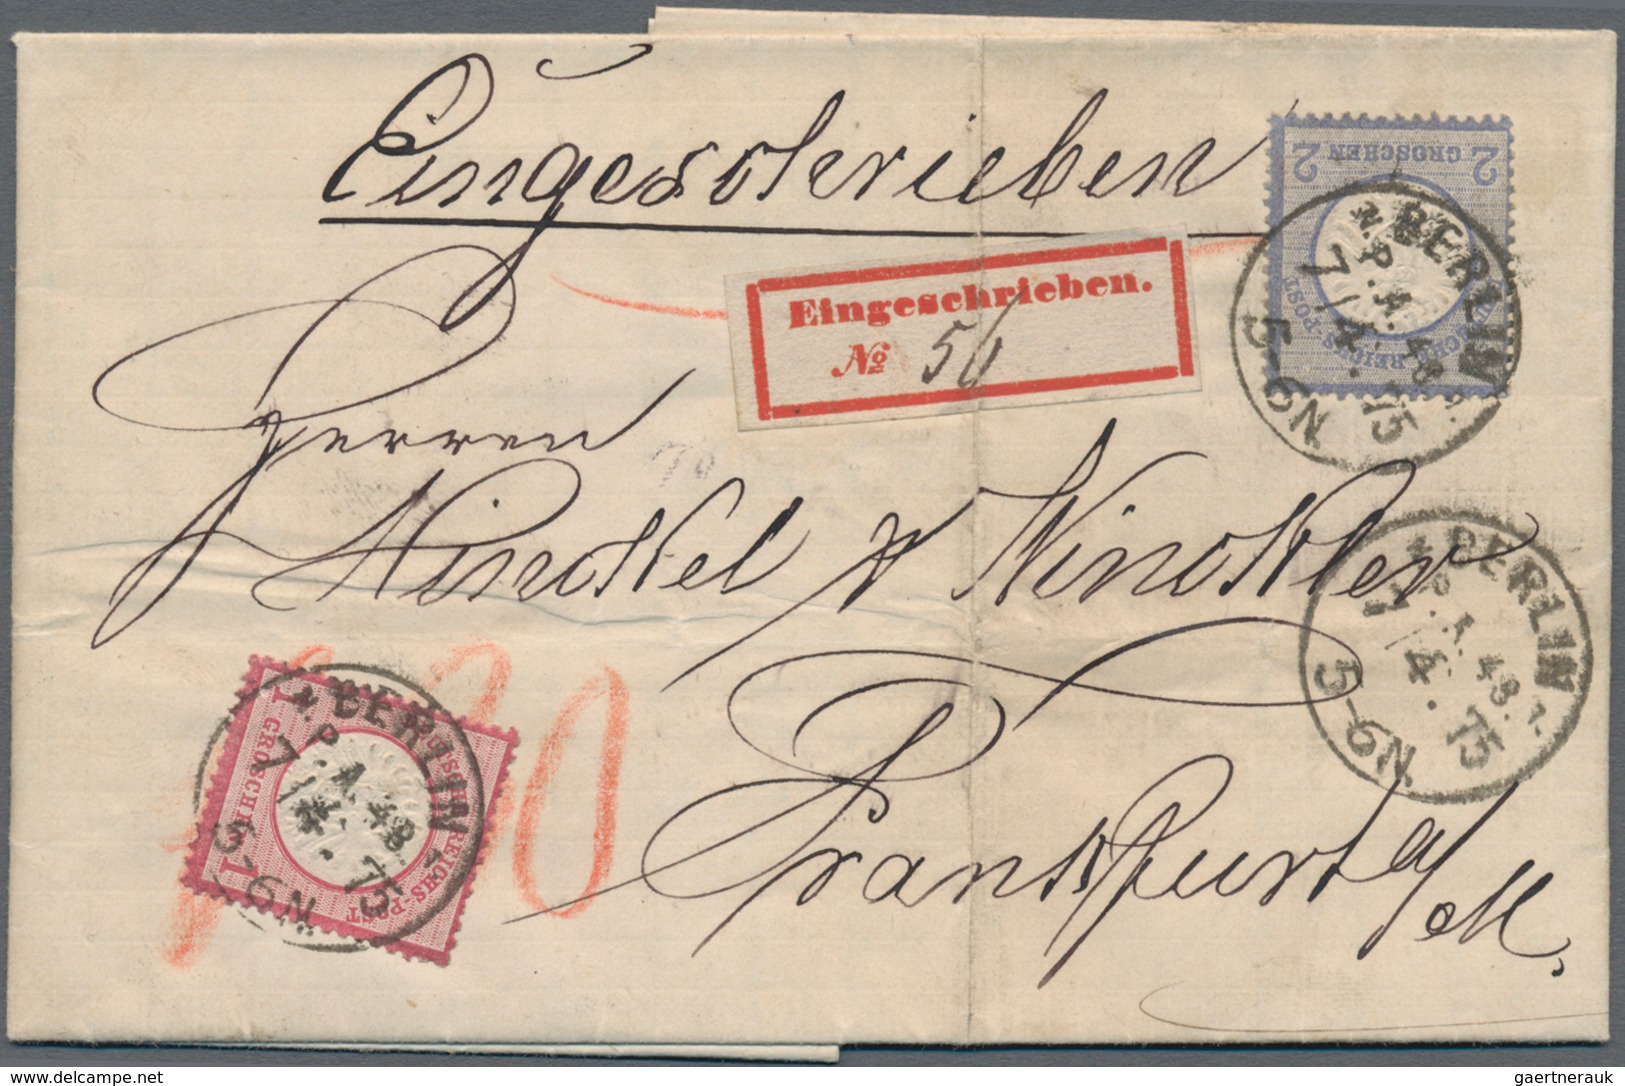 Eingeschrieben
2 2
GROSCHEN
DEUTSCHE REICHS-POST
BERLIN, W.
P.A. 48.
7/4.75
5-6N.
Eingeschrieben.
No 51
Herren
Hinckel & Winckler
BERLIN, W.
P.A. 48.
7/4.75
5-6N.
130
1 1
GROSCHEN
DEUTSCHE REICHS-POST
BERLIN, W.
P.A. 48.
7/4.75
5-6N.
Frankfurt a/M.
delcampe.net
gaertnerauk